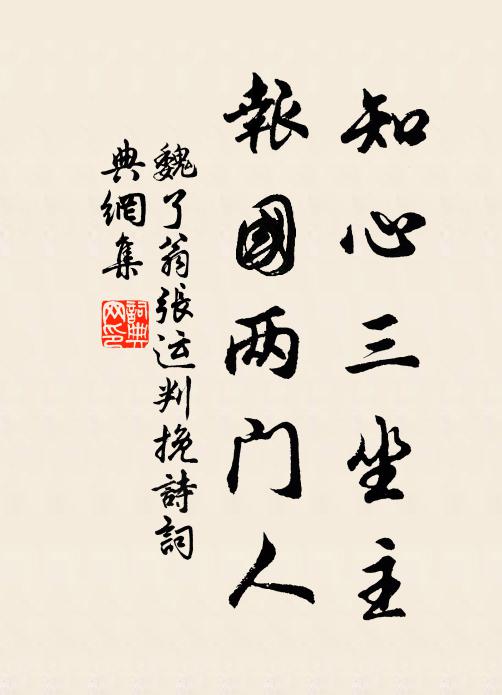 知心三坐主
報國两门人
魏了翁張运判挽詩詞
典網集
詞典
网印